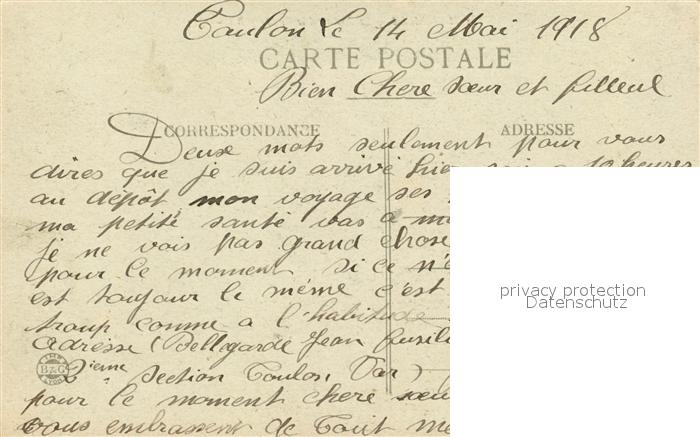 Toulon Le 14 Mai 1918
CARTE POSTALE
Bien Chere sœur et filleul
CORRESPONDANCE ADRESSE
Deux mots seulement pour vous
dires que je suis arrivé hier soir a 10 heures
au dépôt mon voyage ses
ma petite santé vas a
je ne vois pas grand chose
pour le moment si ce n'e
est toujour le même c'est
troup comme a l'habitude
adresse (Bellegarde Jean fusili
2ieme Section Toulon Var)
pour le moment chere sœu
vous embrassent de Tout
B&G
privacy protection
Datenschutz